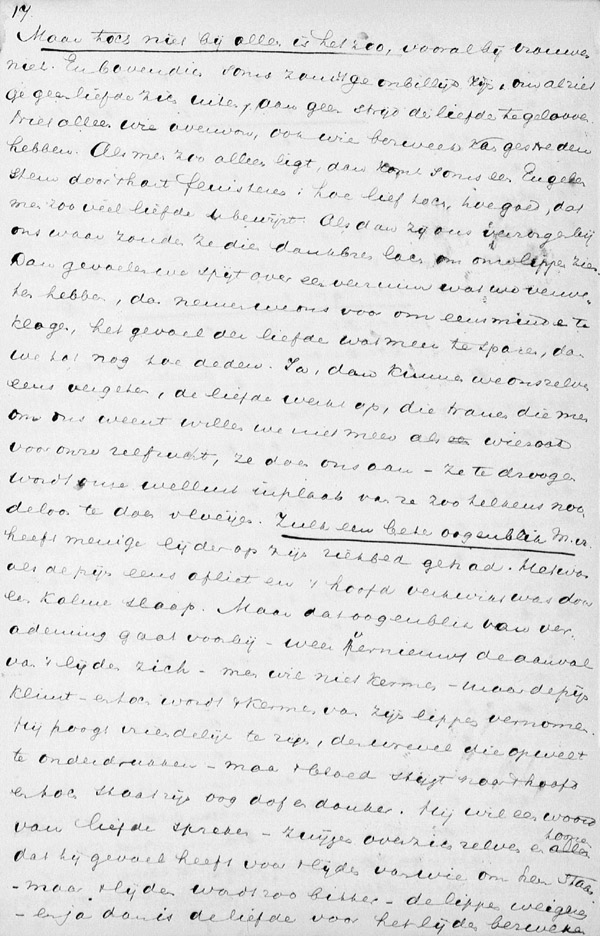 17.
Maar toch niet bij allen is het zoo, vooral bij vrouwen
niet. En bovendien soms zou 't ge onbillijk zijn, om al ziet
ge geen liefde zich uiten, aan geen strijd der liefde te gelooven.
Niet alleen wie overwon, ook wie bezweek kan gestreden
hebben. Als men zoo alleen ligt, dan komt soms een Engelen
stem door 't hart fluisteren: hoe lief toch, hoe goed, dat
men zoo veel liefde u bewijst. Als dan zij ons verzorgen bij
ons waar zouden ze dien dankbren lach om onze lippen zien
Dan gevoelen we spijt over een verzuim wat we
hebben, dan nemen we ons voor om eens minder te
klagen, het gevoel der liefde wat meer te sparen, dan
we tot nog toe deden. Ja, dan kunnen we ons zelven
eens vergeten, de liefde werkt op, die tranen die men
om ons weent willen we niet meer als
voor onze zelfzucht, ze doen ons aan - ze te droogen
wordt onze wellust in plaats van ze zoo telkens noo-
deloos te doen vloeijen. Zulk een beter oogenblik M. H.
heeft menige lijder op zijn ziekbed gehad. Het was
als de pijn eens afliet en 't hoofd verkwikt was door
een kalme slaap. Maar dat oogenblik van ver-
ademing gaat voorbij - weer vernieuwt de aanval
van 't lijden zich - men wil niet kermen - maar de pijn
klimt - en toch wordt 't kermen van zijn lippen vernomen.
Hij poogt vriendelijk te zijn, den wrevel die opwelt
te onderdrukken - maar 't bloed stijgt naar 't hoofd
en toch staat zijn oog dof en donker. Hij wil een woord
van liefde spreken - zwijgen over zich zelven en
toonen
dat hij gevoel heeft voor 't lijden van wie om hem staan
- maar 't lijden wordt zoo bitter - de lippen weigeren
- en ja dan is de liefde voor het lijden bezweken